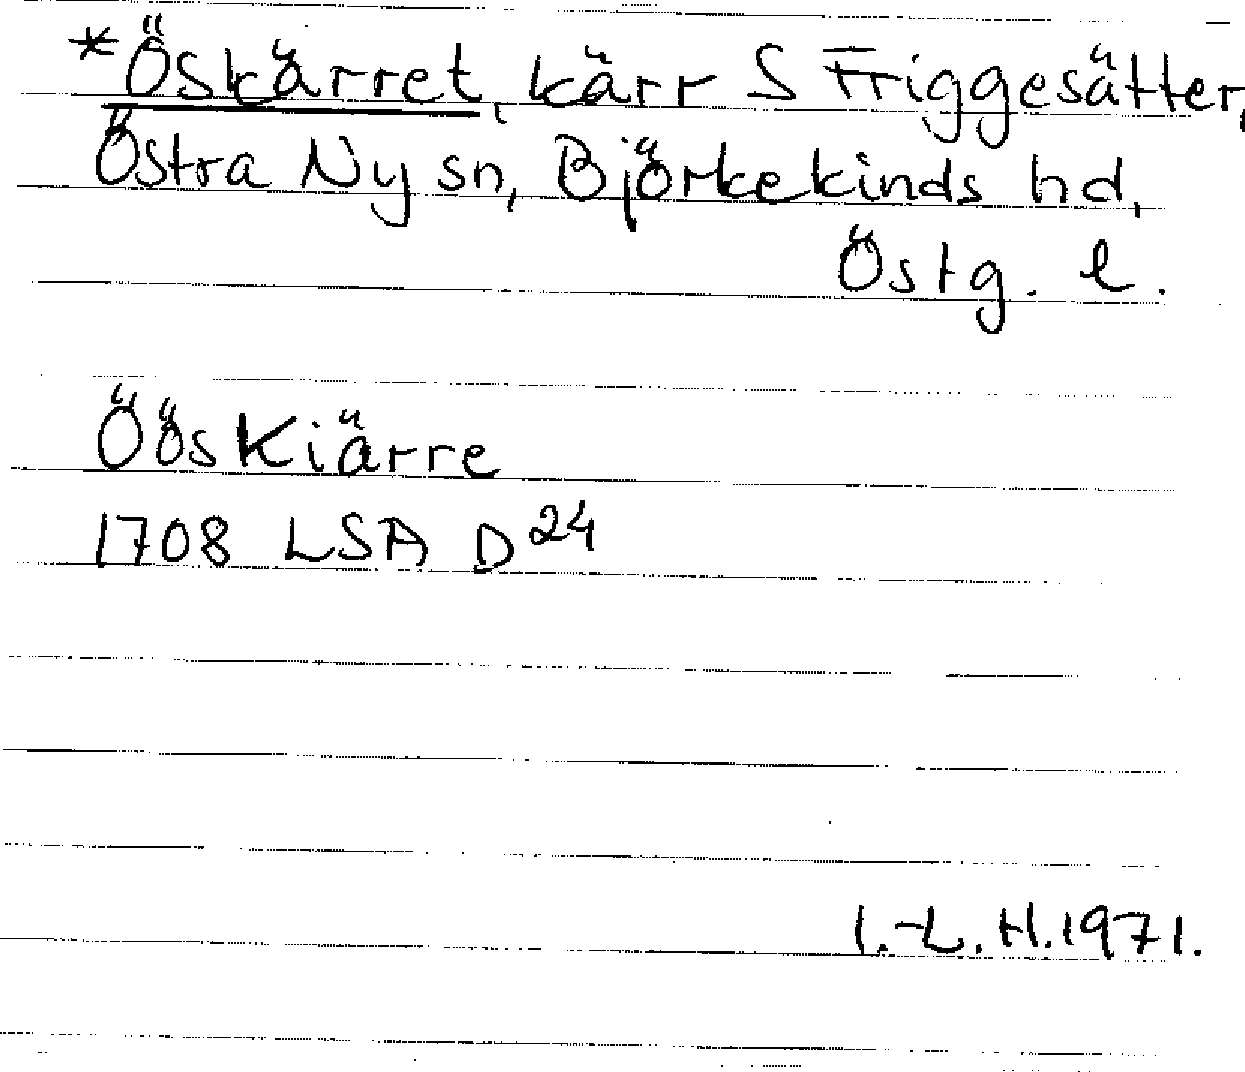 *Öskärret, kärr S Friggesätter,
Östra Ny sn, Björkekinds hd,
Östg. l.
Öös Kiärre
1708 LSA D 24
I.-L. H. 1971.